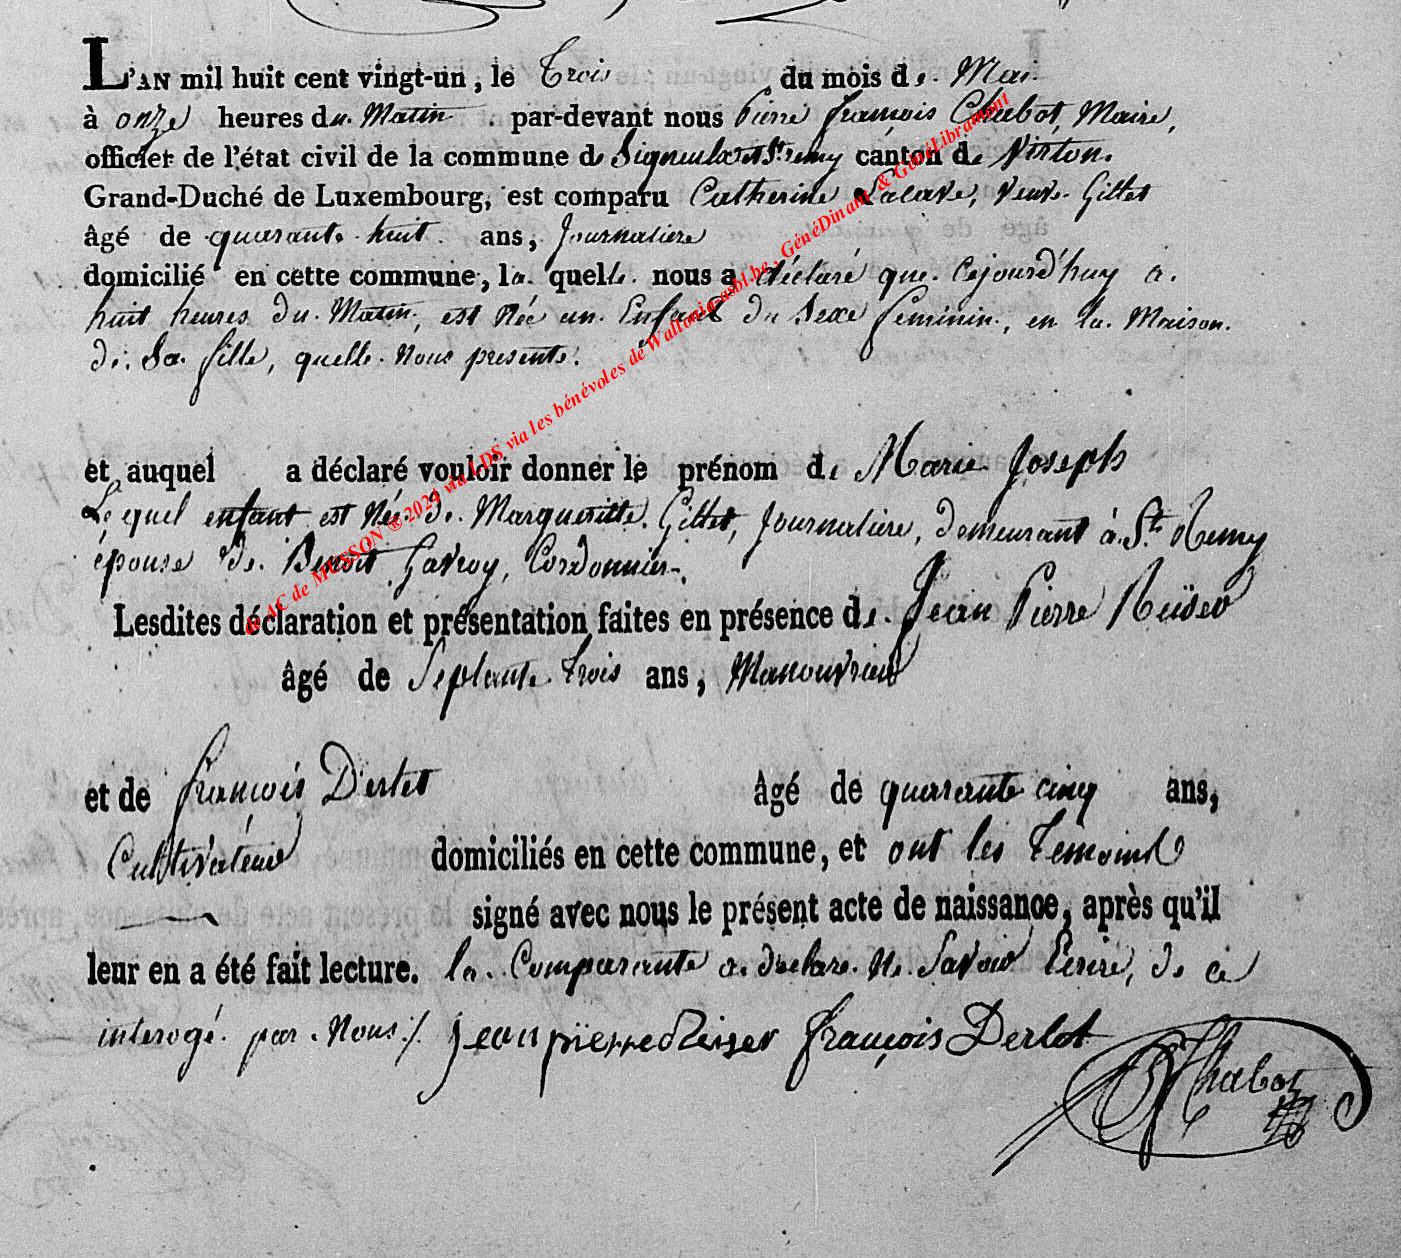 L'AN mil huit cent vingt-un, le Trois du mois de Mai
à onze heures du Matin par-devant nous Pierre françois Chabot, Maire,
officier de l'état civil de la commune de Signeulx et St remy canton de Virton.
Grand-Duché de Luxembourg, est comparu Catherine Lacave, veuve Gillet
âgé de quarante huit ans, Journaliere
domicilié en cette commune, la quelle nous a déclaré que Cejourd'huy a
huit heures du Matin, est Née un Enfant du Sexe feminin, en la Maison
de Sa fille, quelle Nous presente.
et auquel a déclaré vouloir donner le prénom de Marie Joseph
Lequel enfant est Née de Margueritte Gillet, Journaliere, demeurant à St Remy
épouse de Benoit Gavroy, Cordonnier
Lesdites déclaration et présentation faites en présence de Jean Pierre
âgé de Septante trois ans, Manouvrier
et de françois Derlet âgé de quarante cinq ans,
Cultivateur domiciliés en cette commune, et ont les Temoins
signé avec nous le présent acte de naissance, après qu'il
leur en a été fait lecture. la Comparante a declare Ne Savoir Ecrire, de ce
interogé par Nous ./. jeanpiërre Reiser françois Derlot
Chabot
© AC de MUSSON ® 2024 via LDS via les bénévoles de Wallonia-asbl.be : GénéDinant & GénéLibramont